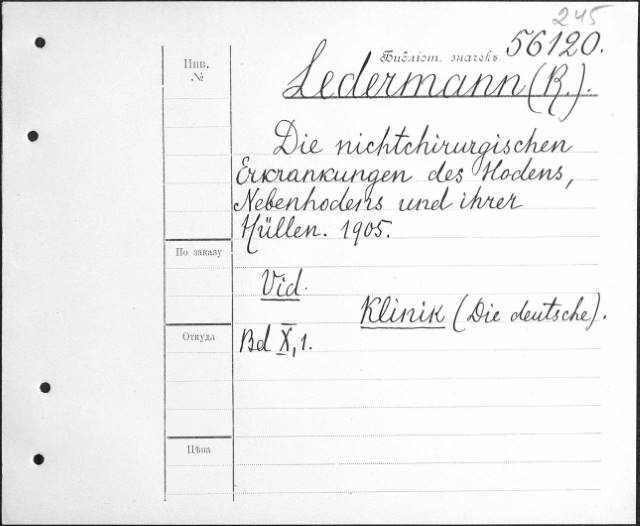 245
56120.
Библіот. значекъ.
Инв.
№
Ledermann (R.).
Die nichtchirurgischen
Erkrankungen des Hodens,
Nebenhodens und ihrer
Hüllen. 1905.
По заказу
Vid.
Klinik (Die deutsche).
Откуда
Bd X, 1.
Цѣна